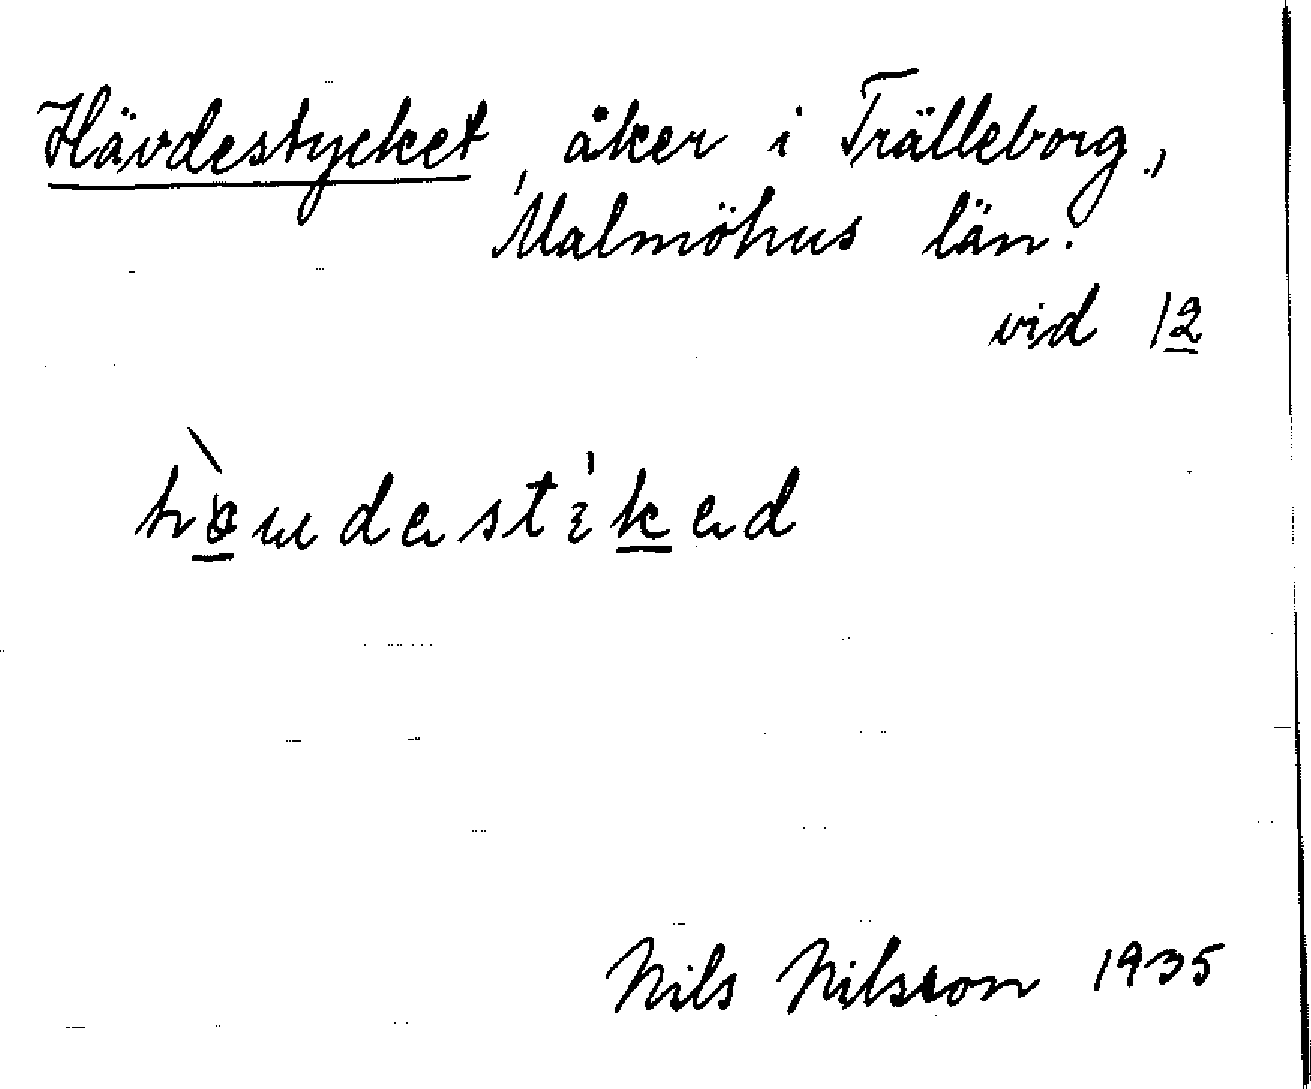 Hävdestycket, åker i Trälleborg,
Malmöhus län.
vid 12
Nils Nilsson 1935